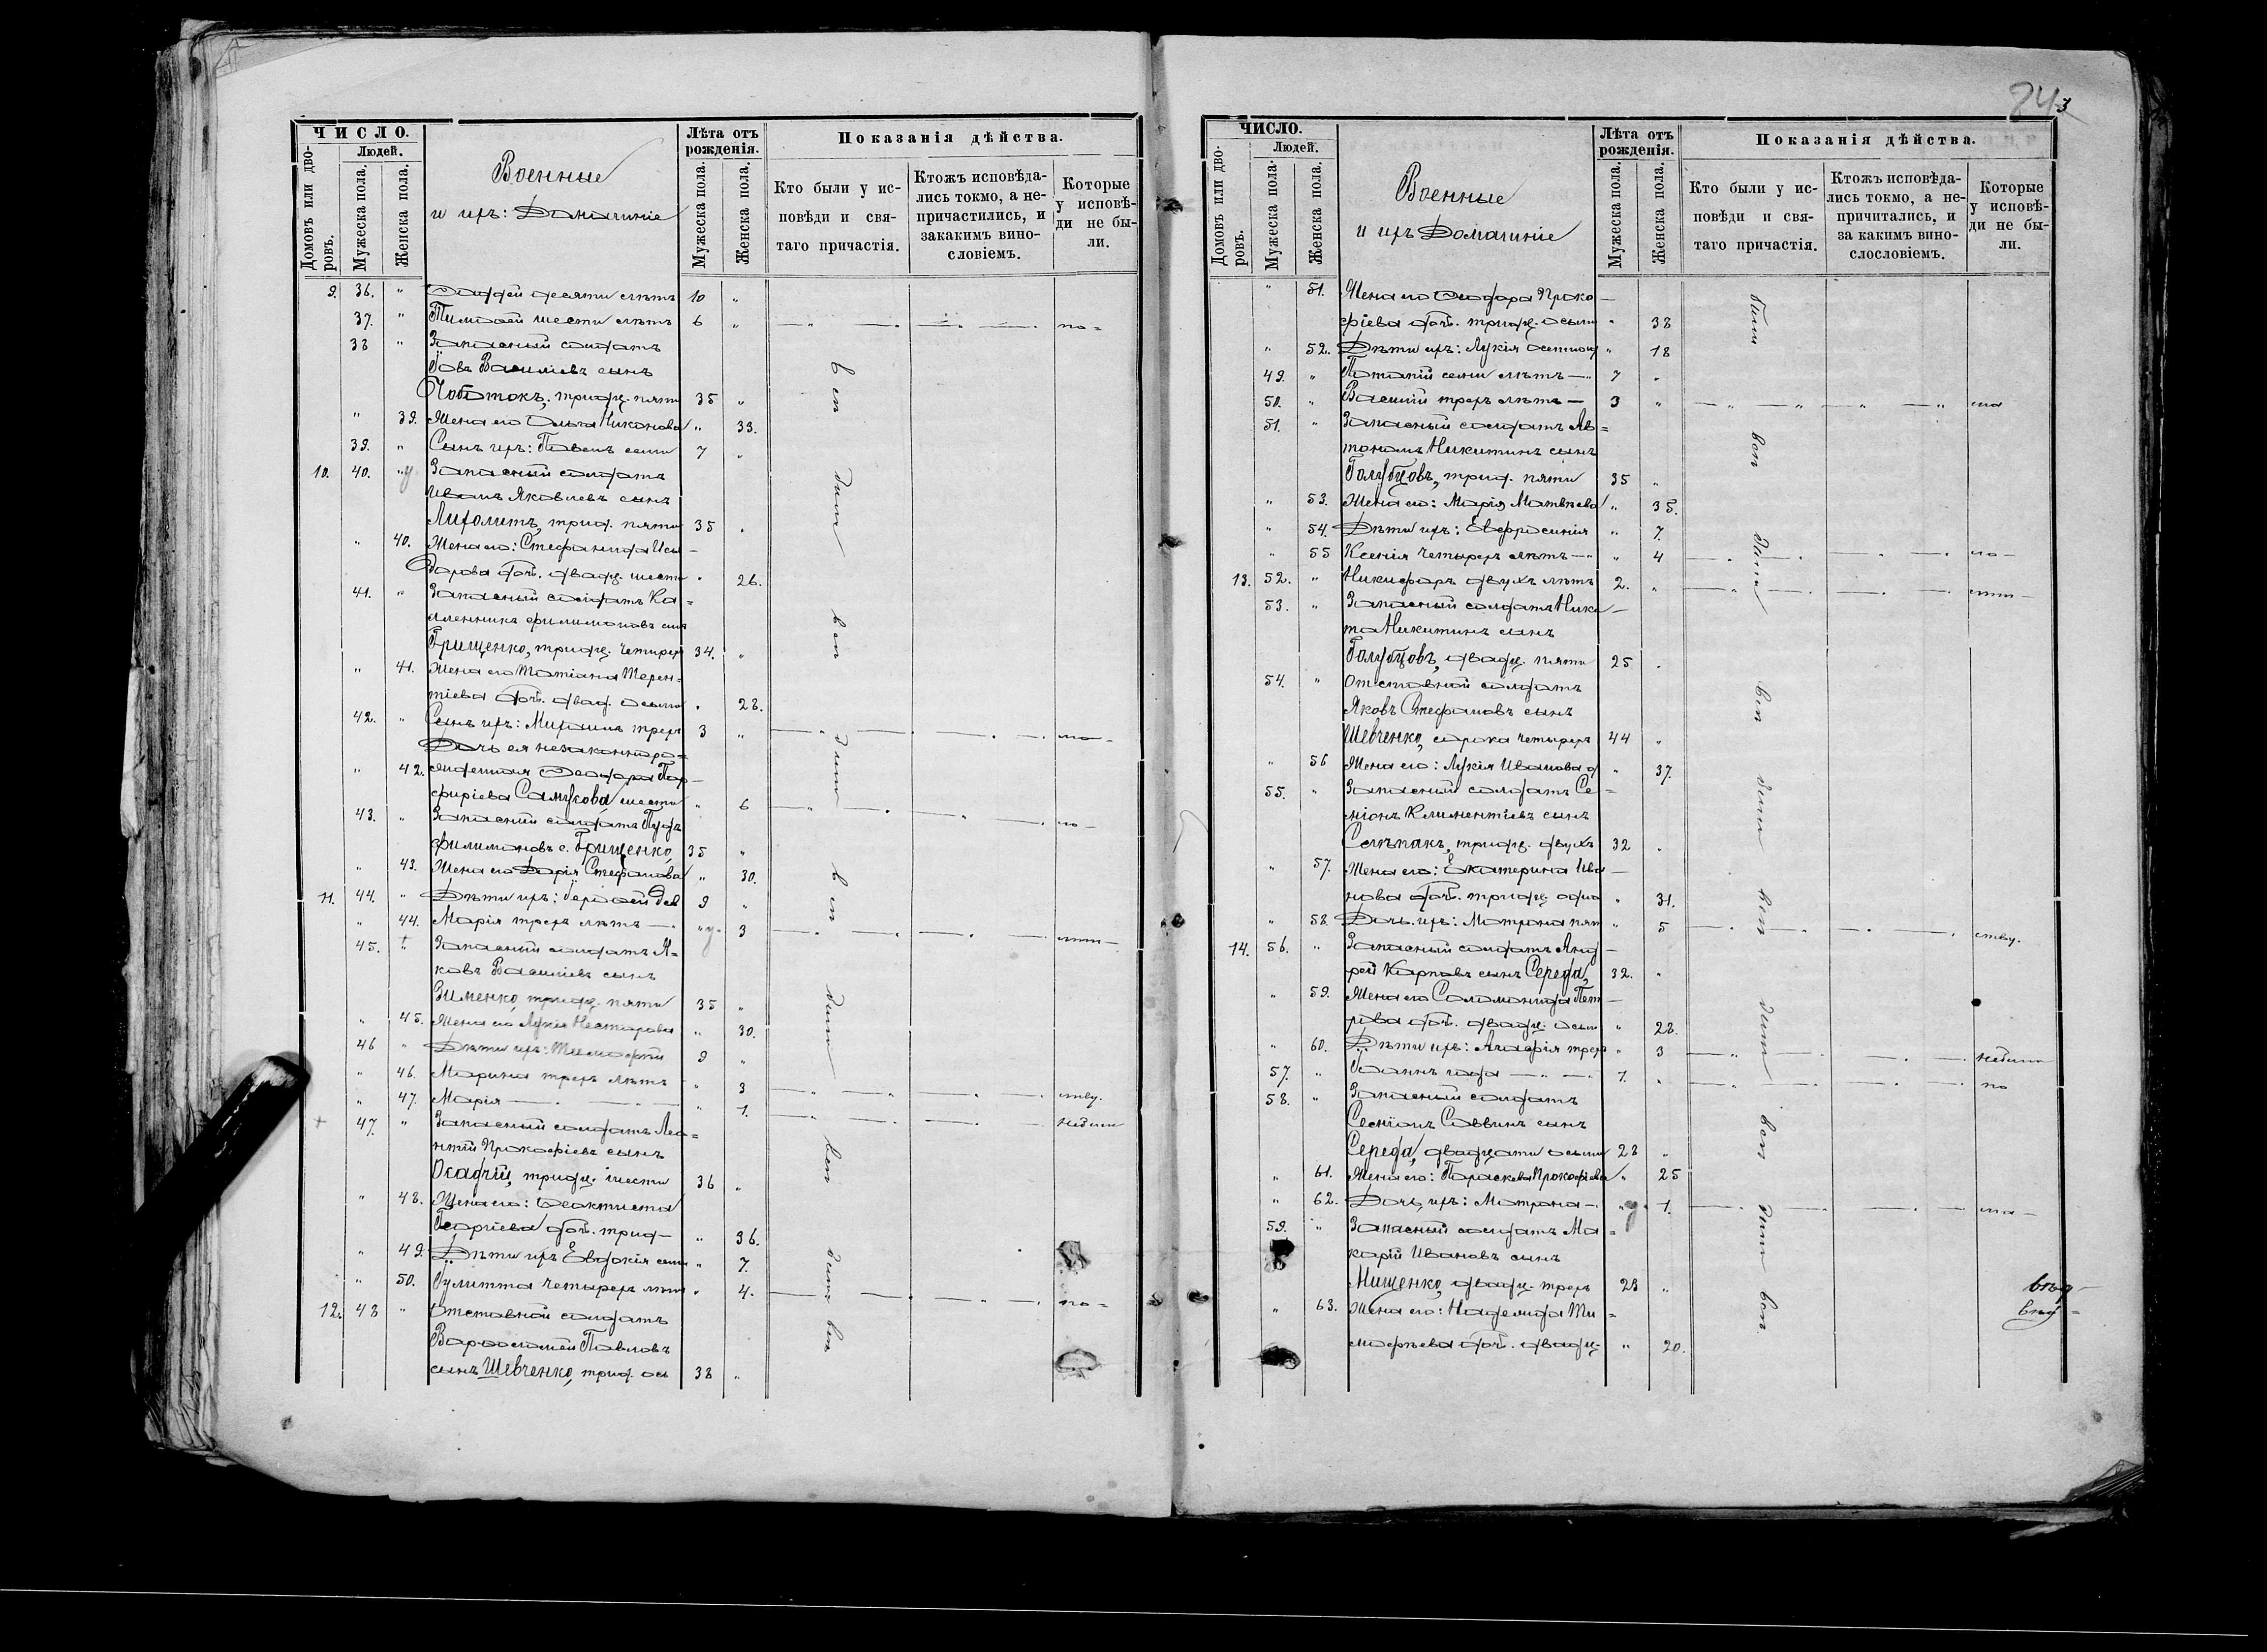 ЧИСЛО.
Людей.
Домовъ или дворовъ.
Мужеска пола.
Женска пола.
Военные
и ихъ: Домашніе
Лѣта отъ рожденія.
Мужеска пола.
Женска пола.
Показанія дѣйства.
Кто были у исповѣди и святаго причастія.
Ктожъ исповѣдались токмо, а непричастились, и закакимъ винословіемъ.
Которые у исповѣди не были.
9. 36. " Ѳаддей десяти лѣтъ 10 "
37. " Тимоѳей шести лѣтъ 6 "
38 " Запасный солдатъ
Іовъ Василіевъ сынъ
Чоботокъ, тридц. пяти 35 "
" 39. Жена его Ольга Никонова " 33.
39. " Сынъ ихъ: Павелъ семи 7 "
10. 40. " Запасный солдатъ
Иванъ Яковлевъ сынъ
Лихолитъ, трид. пяти 35 "
" 40. Жена его: Стефанида Иси-
дорова доч. двадц. шести " 26.
41. " Запасный солдатъ Ка-
лленникъ Филимоновъ сынъ
Грищенко, тридц. четырехъ 34. "
" 41. Жена его Татіана Терен-
тіева доч. двад. осьми " 28.
42. " Сынъ ихъ: Михаилъ трехъ 3 "
Дочь ея незаконноро-
" 42. жденная Ѳеодора Пор-
фиріева Самукова шести " 6
43. " Запасный солдатъ Пудъ
Филимоновъ с. Грищенко, 35 "
" 43. Жена его Дарія Стефанова " 30.
11. 44. " Дѣти ихъ: Іероѳей дев 9 "
" 44. Марія трехъ лѣтъ " 3
45. " Запасный солдатъ Я-
ковъ Василіевъ сынъ
Зименко, тридц. пяти 35 "
" 45. Жена его Лукія Несторова " 30.
46 " Дѣти ихъ: Тимоѳей 9 "
" 46. Марина трехъ лѣтъ " 3
" 47. Марія " 1.
47. " Запасный солдатъ Лео-
нтій Прокофіевъ сынъ
Осадчій, тридц. шести 36 "
" 48. Жена его: Ѳеоктиста
Георгіева доч. трид- " 36.
" 49. Дѣти ихъ Евдокія семи " 7.
" 50. Іулитта четырехъ лѣтъ " 4.
12. 48 " Отставной солдатъ
Варѳоломей Павловъ
сынъ Шевченко, трид. ось 38 "
24 3
ЧИСЛО.
Людей.
Домовъ или дворовъ.
Мужеска пола.
Женска пола.
Военные
и ихъ Домашніе
Лѣта отъ рожденія.
Мужеска пола.
Женска пола.
Показанія дѣйства.
Кто были у исповѣди и святаго причастія.
Ктожъ исповѣдались токмо, а непричитались, и за какимъ винослословіемъ.
Которые у исповѣди не были.
" 51. Жена его Ѳеодора Проко-
фіева доч. тридц. осьми " 38
" 52. Дѣти ихъ: Лукія осмнад " 18
49. " Потапій семи лѣтъ 7 "
50. " Василій трехъ лѣтъ 3 "
51. " Запасный солдатъ Ав-
тономъ Никитинъ сынъ
Голубцовъ, трид. пяти 35 "
" 53. Жена его: Марія Матвѣева " 35.
" 54. Дѣти ихъ: Евфросинія " 7
" 55 Ксенія четырехъ лѣтъ " 4
13. 52. " Никифоръ двухъ лѣтъ 2. "
53. " Запасный солдатъ Ники-
та Никитинъ сынъ
Голубцовъ, двадц. пяти 25 "
54. " Отставной солдатъ
Яковъ Стефановъ сынъ
Шевченко, сорока четырехъ 44 "
" 56 Жена его: Лукія Иванова д " 37.
55. " Запасный солдатъ Се-
міонъ Климентіевъ сынъ
Селѣпакъ, тридц. двухъ 32 "
" 57. Жена его: Екатерина Ива-
нова доч. тридц. одно " 31.
" 58. Дочь ихъ: Матрона пят " 5
14. 56. " Запасный солдатъ Анд-
рей Карповъ сынъ Середа, 32. "
" 59. Жена его Соломонида Пет-
рова доч. двадц. осьм " 28.
" 60. Дѣти ихъ: Агафія трехъ " 3
57. " Іоаннъ года 1. "
58. " Запасный солдатъ
Семіонъ Саввинъ сынъ
Середа, двадцати осьми 28 "
" 61. Жена его: Параскева Прокофіева " 25
" 62. Дочь ихъ: Матрона " 1.
59. " Запасный солдатъ Ма-
карій Ивановъ сынъ
Мищенко, двадц. трехъ 23 "
" 63. Жена его: Надежда Ти-
мофѣева доч. двадц. " 20.